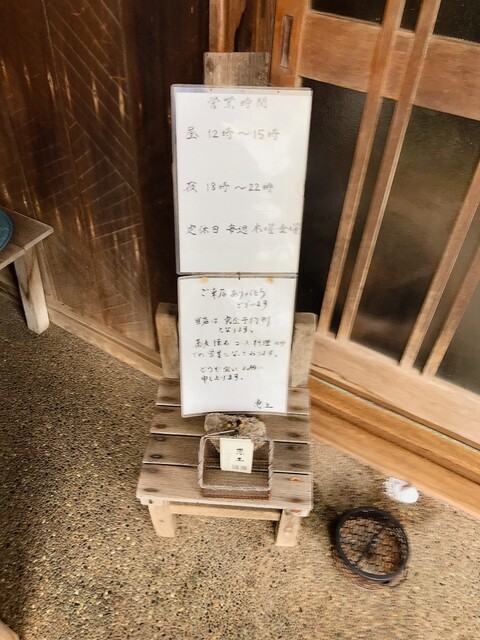 営業時間
昼 12時〜15時
夜 18時〜22時
定休日 毎週 木曜 金曜
ご来店ありがとう
ございます
当店は 完全予約制
となります。
コース料理のみ
での営業となっております。
申し上ります。